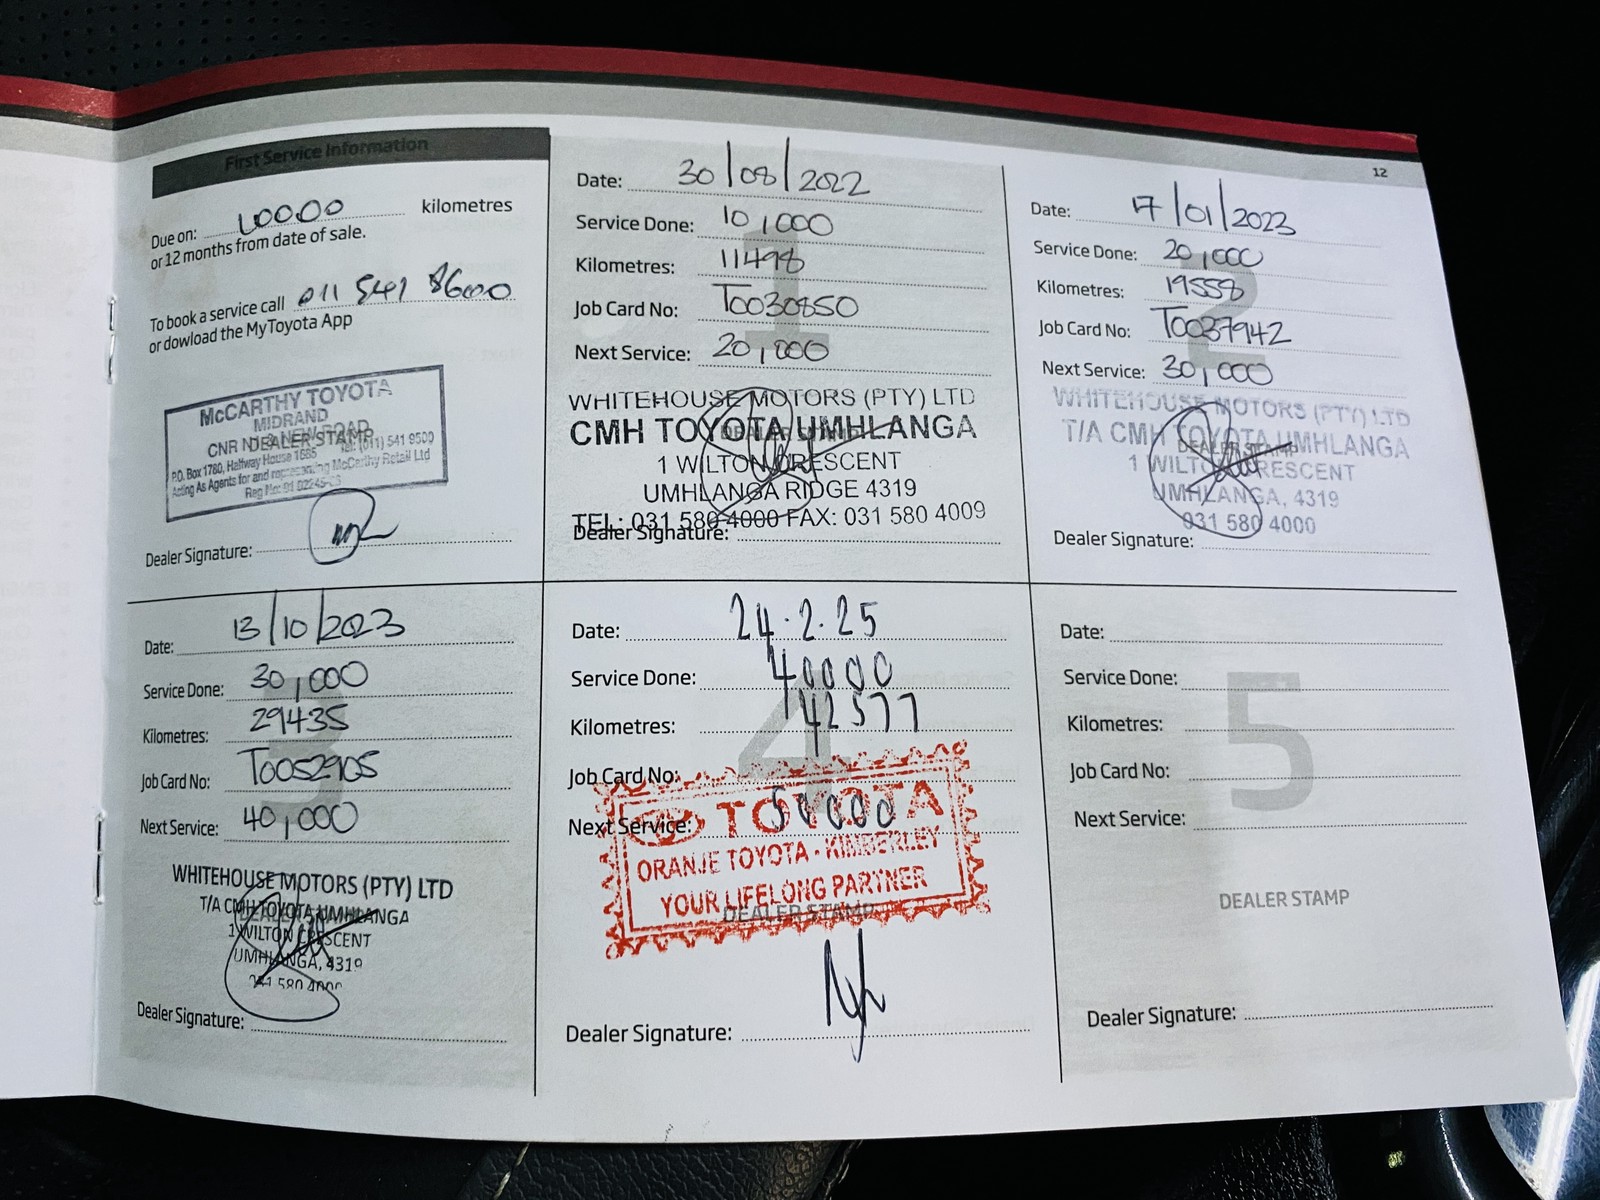 12
First Service Information
Due on: 10000 kilometres
or 12 months from date of sale.
To book a service call 011 541 8600
or dowload the MyToyota App
McCARTHY TOYOTA
MIDRAND
CNR N
DEALER STAMP
Tel: (011) 541 9500
P.O. Box 1780, Halfway House 1685
Acting As Agents for and representing McCarthy Retail Ltd
Dealer Signature:
1
Date: 30/08/2022
Service Done: 10,000
Kilometres: 11498
Job Card No: T0030850
Next Service: 20,000
WHITEHOUSE MOTORS (PTY) LTD
CMH TOYOTA UMHLANGA
DEALER STAMP
1 WILTON CRESCENT
UMHLANGA RIDGE 4319
TEL: 031 580 4000 FAX: 031 580 4009
Dealer Signature:
2
Date: 17/01/2023
Service Done: 20,000
Kilometres: 19558
Job Card No: T0037942
Next Service: 30,000
WHITEHOUSE MOTORS (PTY) LTD
T/A CMH TOYOTA UMHLANGA
DEALER STAMP
1 WILTON CRESCENT
UMHLANGA, 4319
031 580 4000
Dealer Signature:
3
Date: 13/10/2023
Service Done: 30,000
Kilometres: 29435
Job Card No: T0052905
Next Service: 40,000
WHITEHOUSE MOTORS (PTY) LTD
T/A CMH TOYOTA UMHLANGA
DEALER STAMP
1 WILTON CRESCENT
UMHLANGA, 4319
031 580 4000
Dealer Signature:
4
Date: 24.2.25
Service Done: 40000
Kilometres: 42577
Job Card No:
Next Service: 50000
TOYOTA
ORANJE TOYOTA - KIMBERLEY
YOUR LIFELONG PARTNER
DEALER STAMP
Dealer Signature:
5
Date:
Service Done:
Kilometres:
Job Card No:
Next Service:
DEALER STAMP
Dealer Signature: